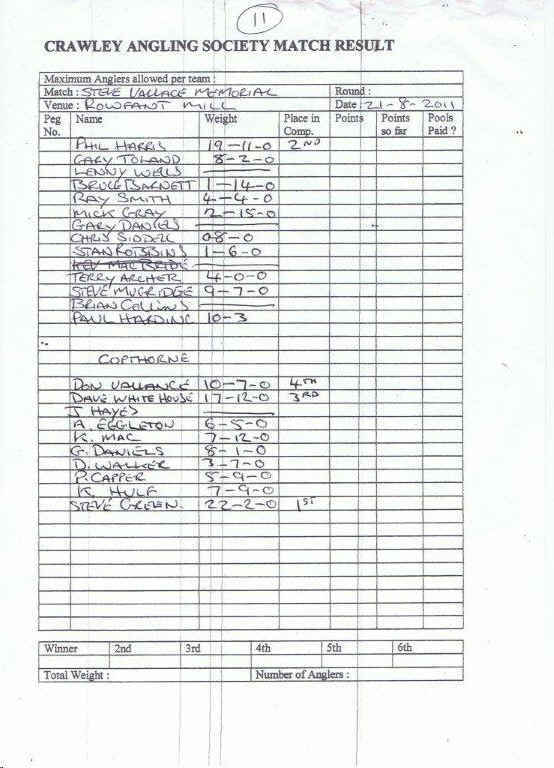 11
CRAWLEY ANGLING SOCIETY MATCH RESULT
Maximum Anglers allowed per team :
Match : STEVE VALLACE MEMORIAL Round :
Venue : ROWFANT MILL Date : 21-8-2011
Peg No. Name Weight Place in Comp. Points Points so far Pools Paid ?
PHIL HARRIS 19-11-0 2ND
GARY TOLAND 8-2-0
LENNY WELLS
BRUCE BARNETT 1-14-0
RAY SMITH 4-4-0
MICK GRAY 2-15-0
GARY DANIELS
CHRIS SIDDELL 08-0
STAN ROBBINS 1-6-0
KEV MACBRIDE
TERRY ARCHER 4-0-0
STEVE MUGRIDGE 9-7-0
BRIAN COLLINS
PAUL HARDING 10-3
COPTHORNE
DON VALLANCE 10-7-0 4TH
DAVE WHITE HOUSE 17-12-0 3RD
J HAYES
A. EGGLETON 6-5-0
K. MAC 7-12-0
G. DANIELS 8-1-0
D. WALKER 3-7-0
P. CAPPER 5-9-0
K. HULF 7-9-0
STEVE GREEN. 22-2-0 1ST
Winner 2nd 3rd 4th 5th 6th
Total Weight : Number of Anglers :